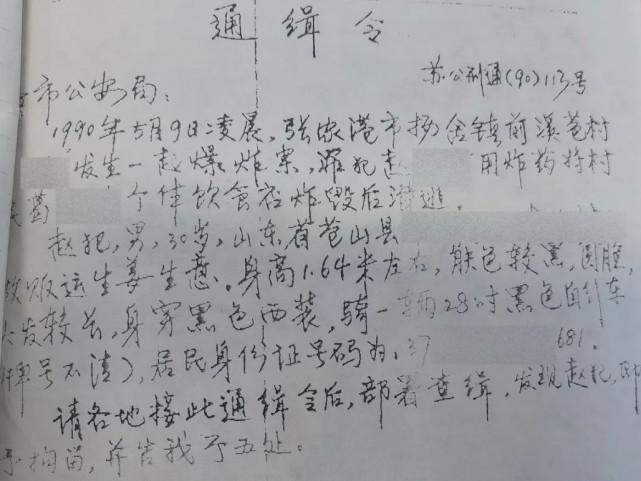 通缉令
苏公刑通(90)113号
市公安局：
1990年5月9日凌晨，张家港市杨舍镇前溪巷村
发生一起爆炸案，罪犯赵 用炸药将村
民葛 个体饮食店炸毁后潜逃。
赵犯，男，30岁，山东省苍山县
贩运生姜生意。身高1.64米左右，肤色较黑，圆脸，
头发较长，身穿黑色西装，骑一辆28吋黑色自行车
(牌号不清)，居民身份证号码为：37 681。
请各地接此通缉令后，部署查缉，发现赵犯，即
予拘留，并告我厅五处。